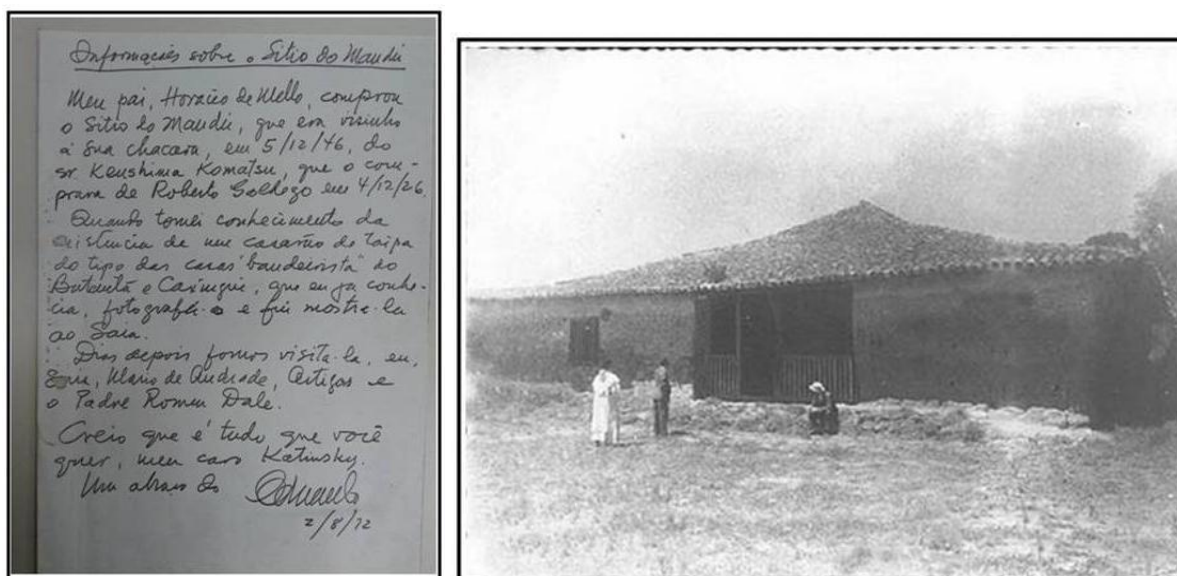 Informações sobre o Sitio do Mandu
Meu pai, Horacio de Mello, comprou
o Sitio do Mandu, que era visinho
à sua chacara, em 5/12/46, do
sr Kenshima Komatsu, que o com-
prara de Roberto em 4/12/26.
Quando tomei conhecimento da
existencia de um casarão de taipa
do tipo das casas "bandeirista" do
Butantã e Caxingui, que eu ja conhe-
cia, fotografei-o e fui mostra-la
ao Saia.
Dias depois fomos visita-la, eu,
Saia, Mario de Andrade, Artigas e
o Padre Romeu Dale.
Creio que é tudo que você
quer, meu caro Katinsky.
Um abraço do Eduardo
2/8/72